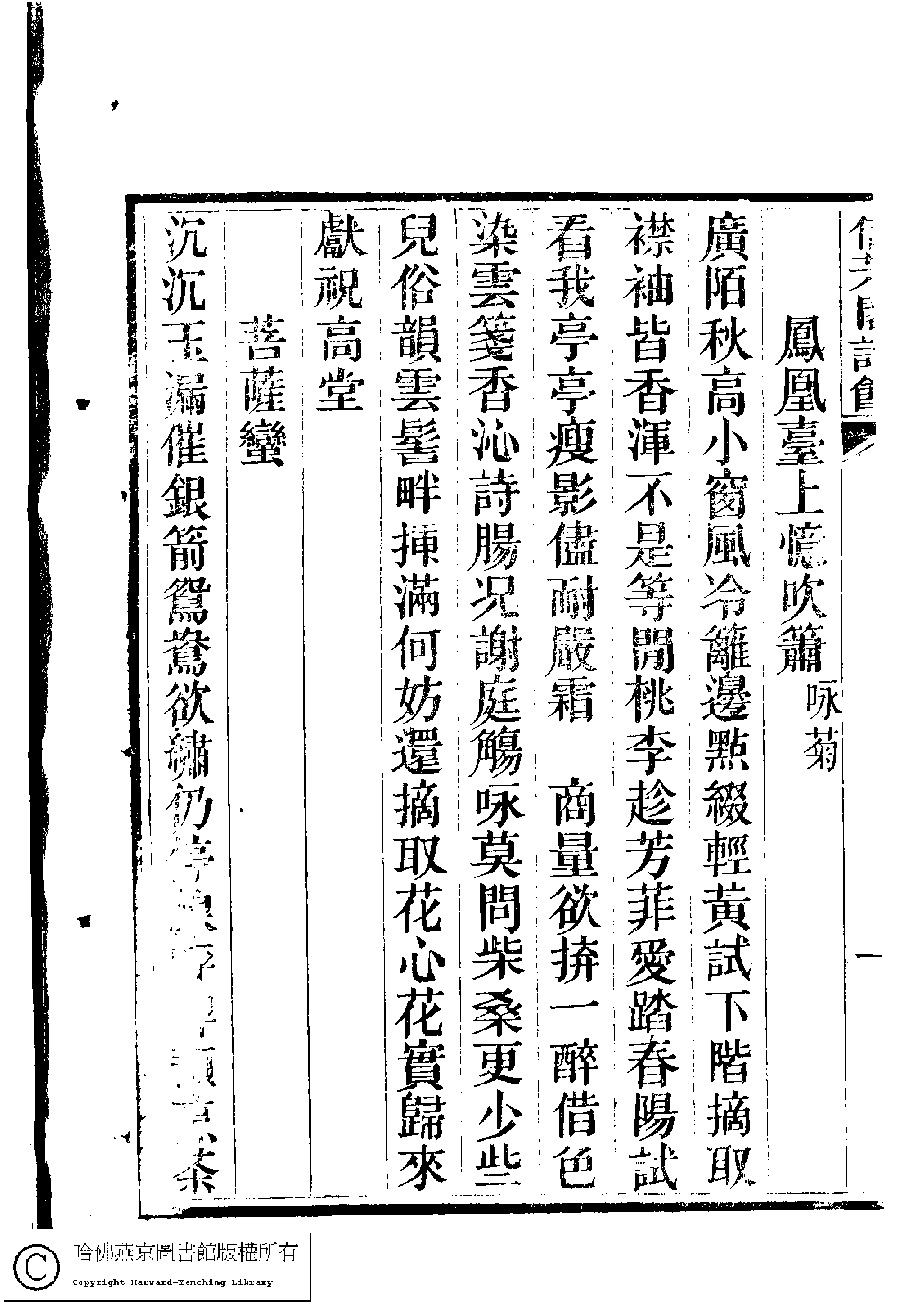 鳳凰臺上憶吹簫 咏菊
廣陌秋高小窗風冷籬邊點綴輕黃試下階摘取
襟袖皆香渾不是等閒桃李趁芳菲愛踏春陽試
看我亭亭瘦影儘耐嚴霜　商量欲拚一醉借色
染雲箋香沁詩腸况謝庭觴咏莫問柴桑更少些
兒俗韻雲髻畔揷滿何妨還摘取花心花實歸來
獻祝高堂
菩薩蠻
沉沉玉漏催銀箭鴛鴦欲繡仍停
一
哈佛燕京圖書館版權所有
Copyright Harvard-Yenching Library